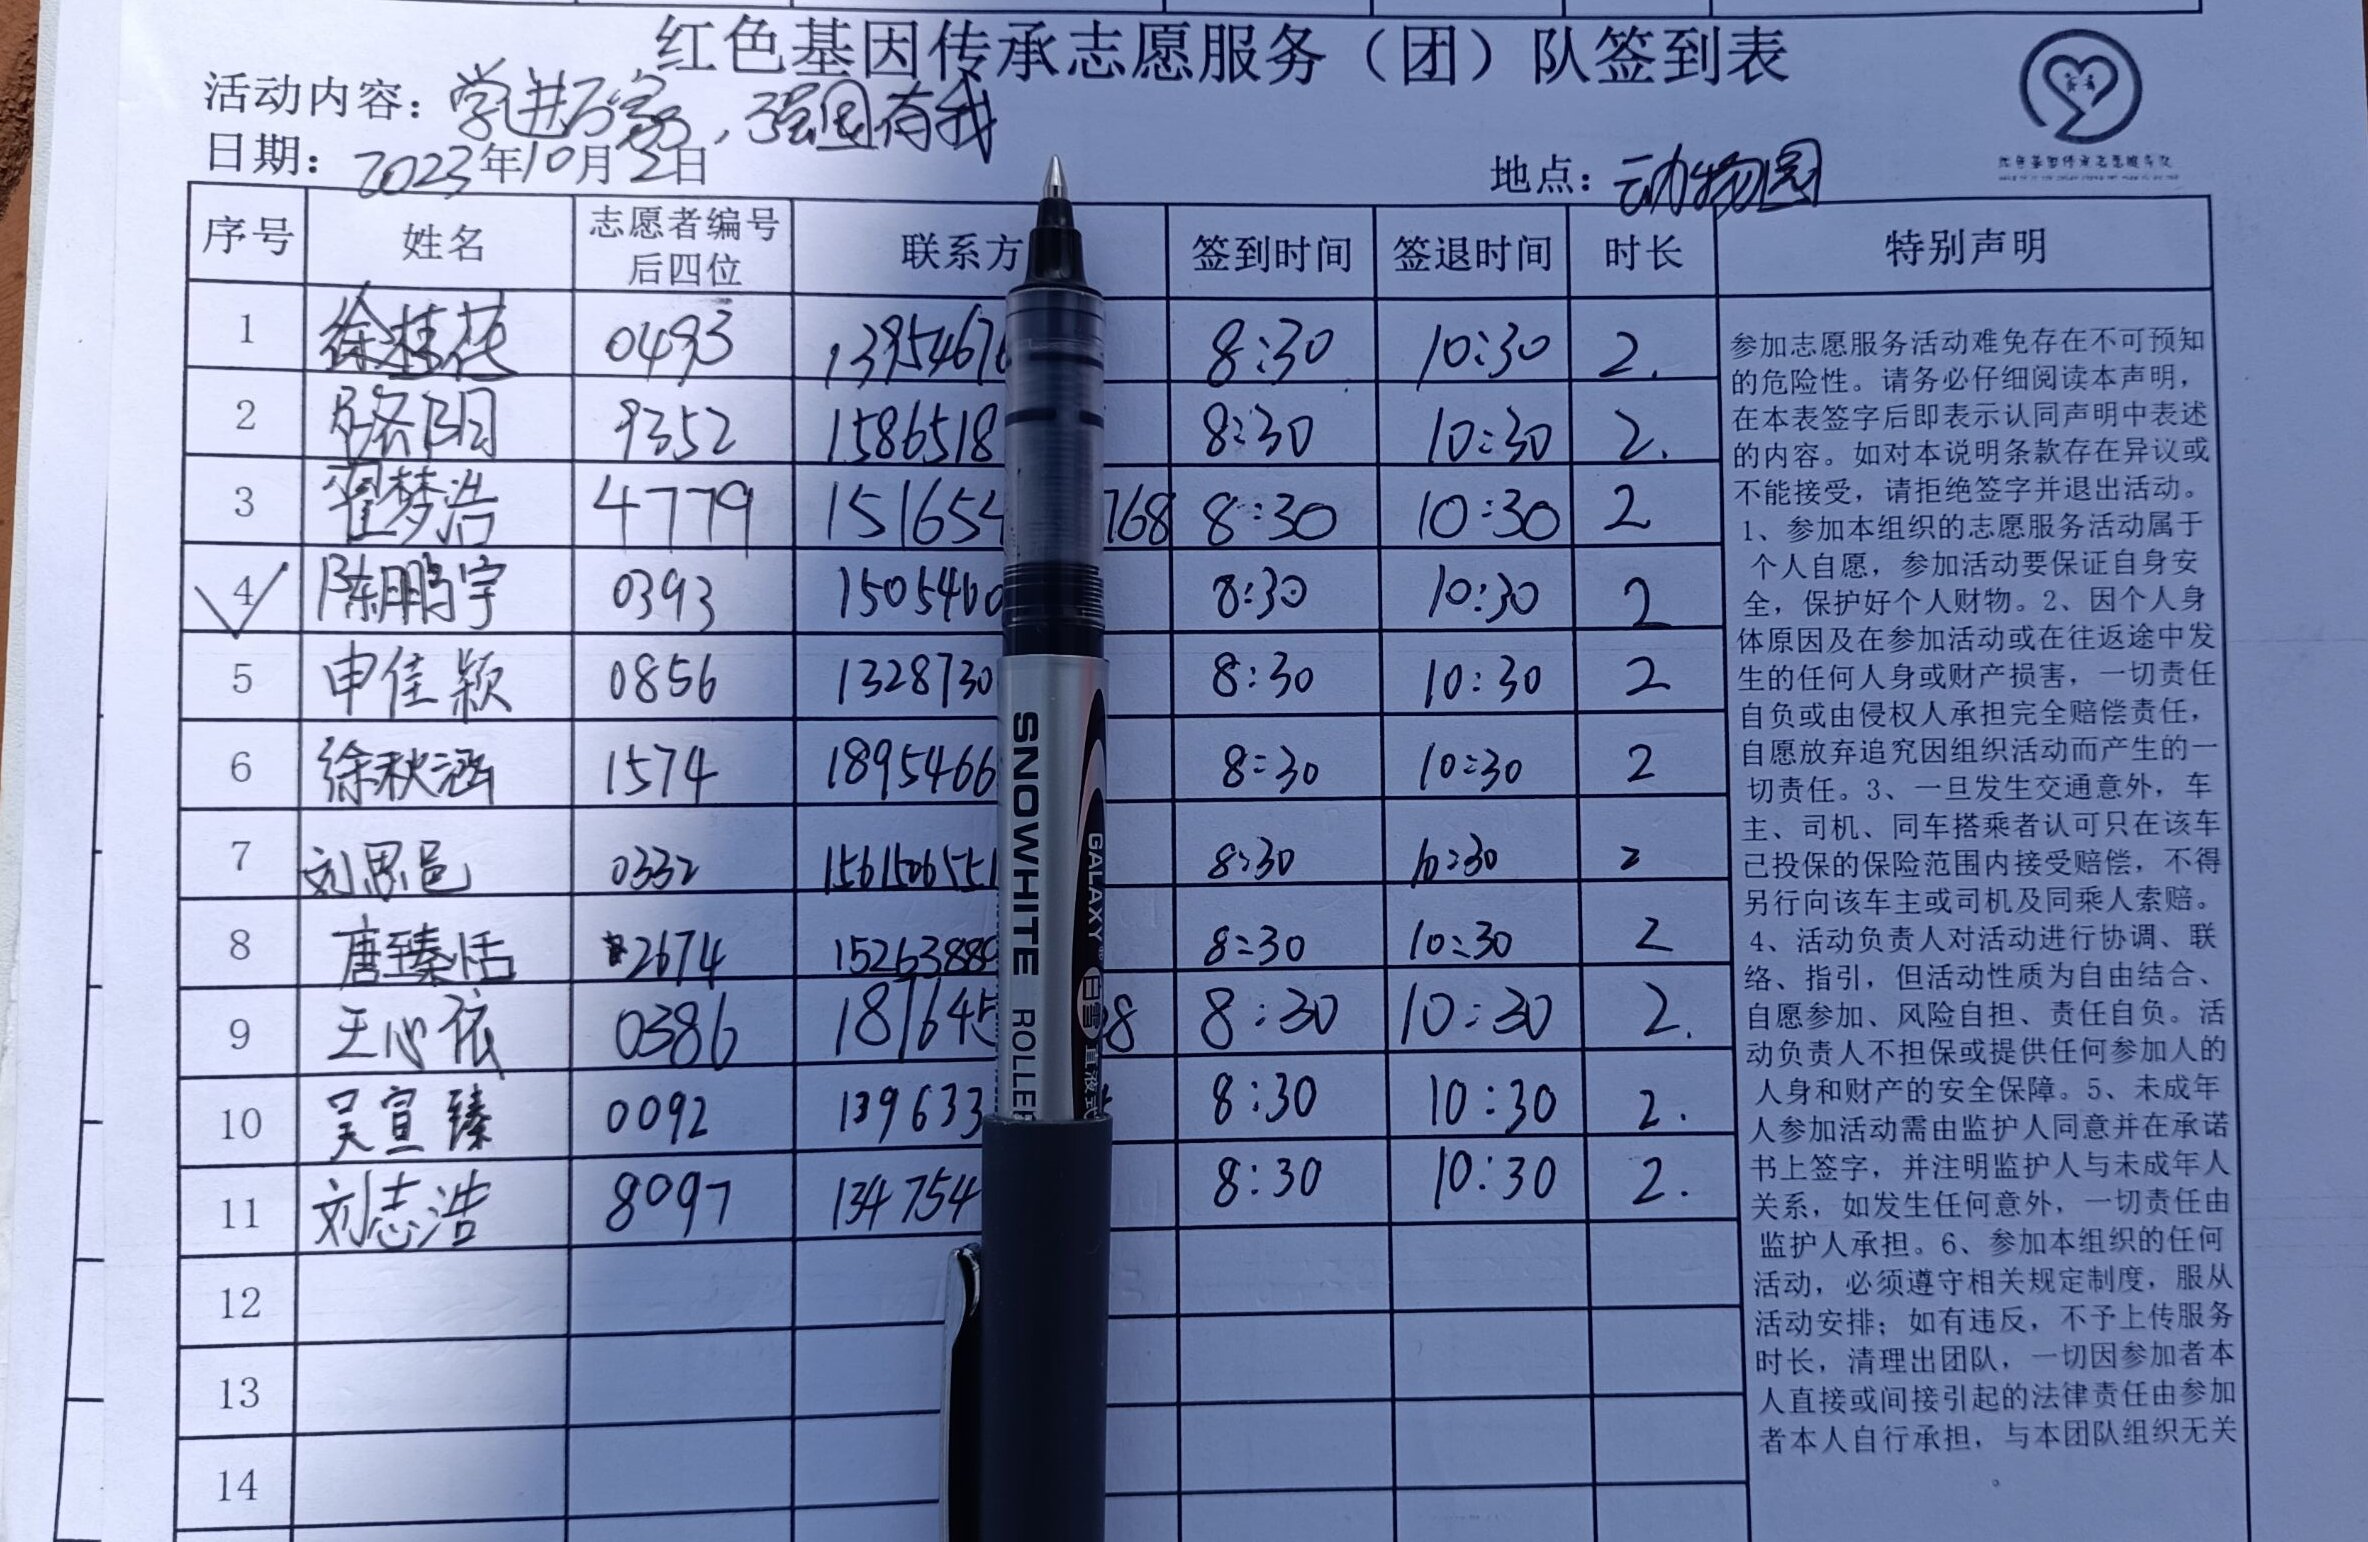 红色基因传承志愿服务（团）队签到表
活动内容：学进万家，强国有我
日期：2023年10月2日
地点：动物园
序号 姓名 志愿者编号后四位 联系方 签到时间 签退时间 时长 特别声明
1 徐桂花 0493 1395467 8:30 10:30 2.
2 骆阳 9352 1586518 8:30 10:30 2.
3 翟梦浩 4779 151654 768 8:30 10:30 2
4 陈鹏宇 0393 1505460 8:30 10:30 2
5 申佳颖 0856 1328730 8:30 10:30 2
6 徐秋涵 1574 1895466 8:30 10:30 2
7 刘思邑 0332 1561506551 8:30 10:30 2
8 唐臻恬 2674 15263889 8:30 10:30 2
9 王心依 0386 187645 8 8:30 10:30 2.
10 吴宣臻 0092 139633 8:30 10:30 2.
11 刘志浩 8097 134754 8:30 10:30 2.
12
13
14
参加志愿服务活动难免存在不可预知
的危险性。请务必仔细阅读本声明，
在本表签字后即表示认同声明中表述
的内容。如对本说明条款存在异议或
不能接受，请拒绝签字并退出活动。
1、参加本组织的志愿服务活动属于
个人自愿，参加活动要保证自身安
全，保护好个人财物。2、因个人身
体原因及在参加活动或在往返途中发
生的任何人身或财产损害，一切责任
自负或由侵权人承担完全赔偿责任，
自愿放弃追究因组织活动而产生的一
切责任。3、一旦发生交通意外，车
主、司机、同车搭乘者认可只在该车
已投保的保险范围内接受赔偿，不得
另行向该车主或司机及同乘人索赔。
4、活动负责人对活动进行协调、联
络、指引，但活动性质为自由结合、
自愿参加、风险自担、责任自负。活
动负责人不担保或提供任何参加人的
人身和财产的安全保障。5、未成年
人参加活动需由监护人同意并在承诺
书上签字，并注明监护人与未成年人
关系，如发生任何意外，一切责任由
监护人承担。6、参加本组织的任何
活动，必须遵守相关规定制度，服从
活动安排；如有违反，不予上传服务
时长，清理出团队，一切因参加者本
人直接或间接引起的法律责任由参加
者本人自行承担，与本团队组织无关
。
SNOWHITE ROLLER
GALAXY 白雪 直液式